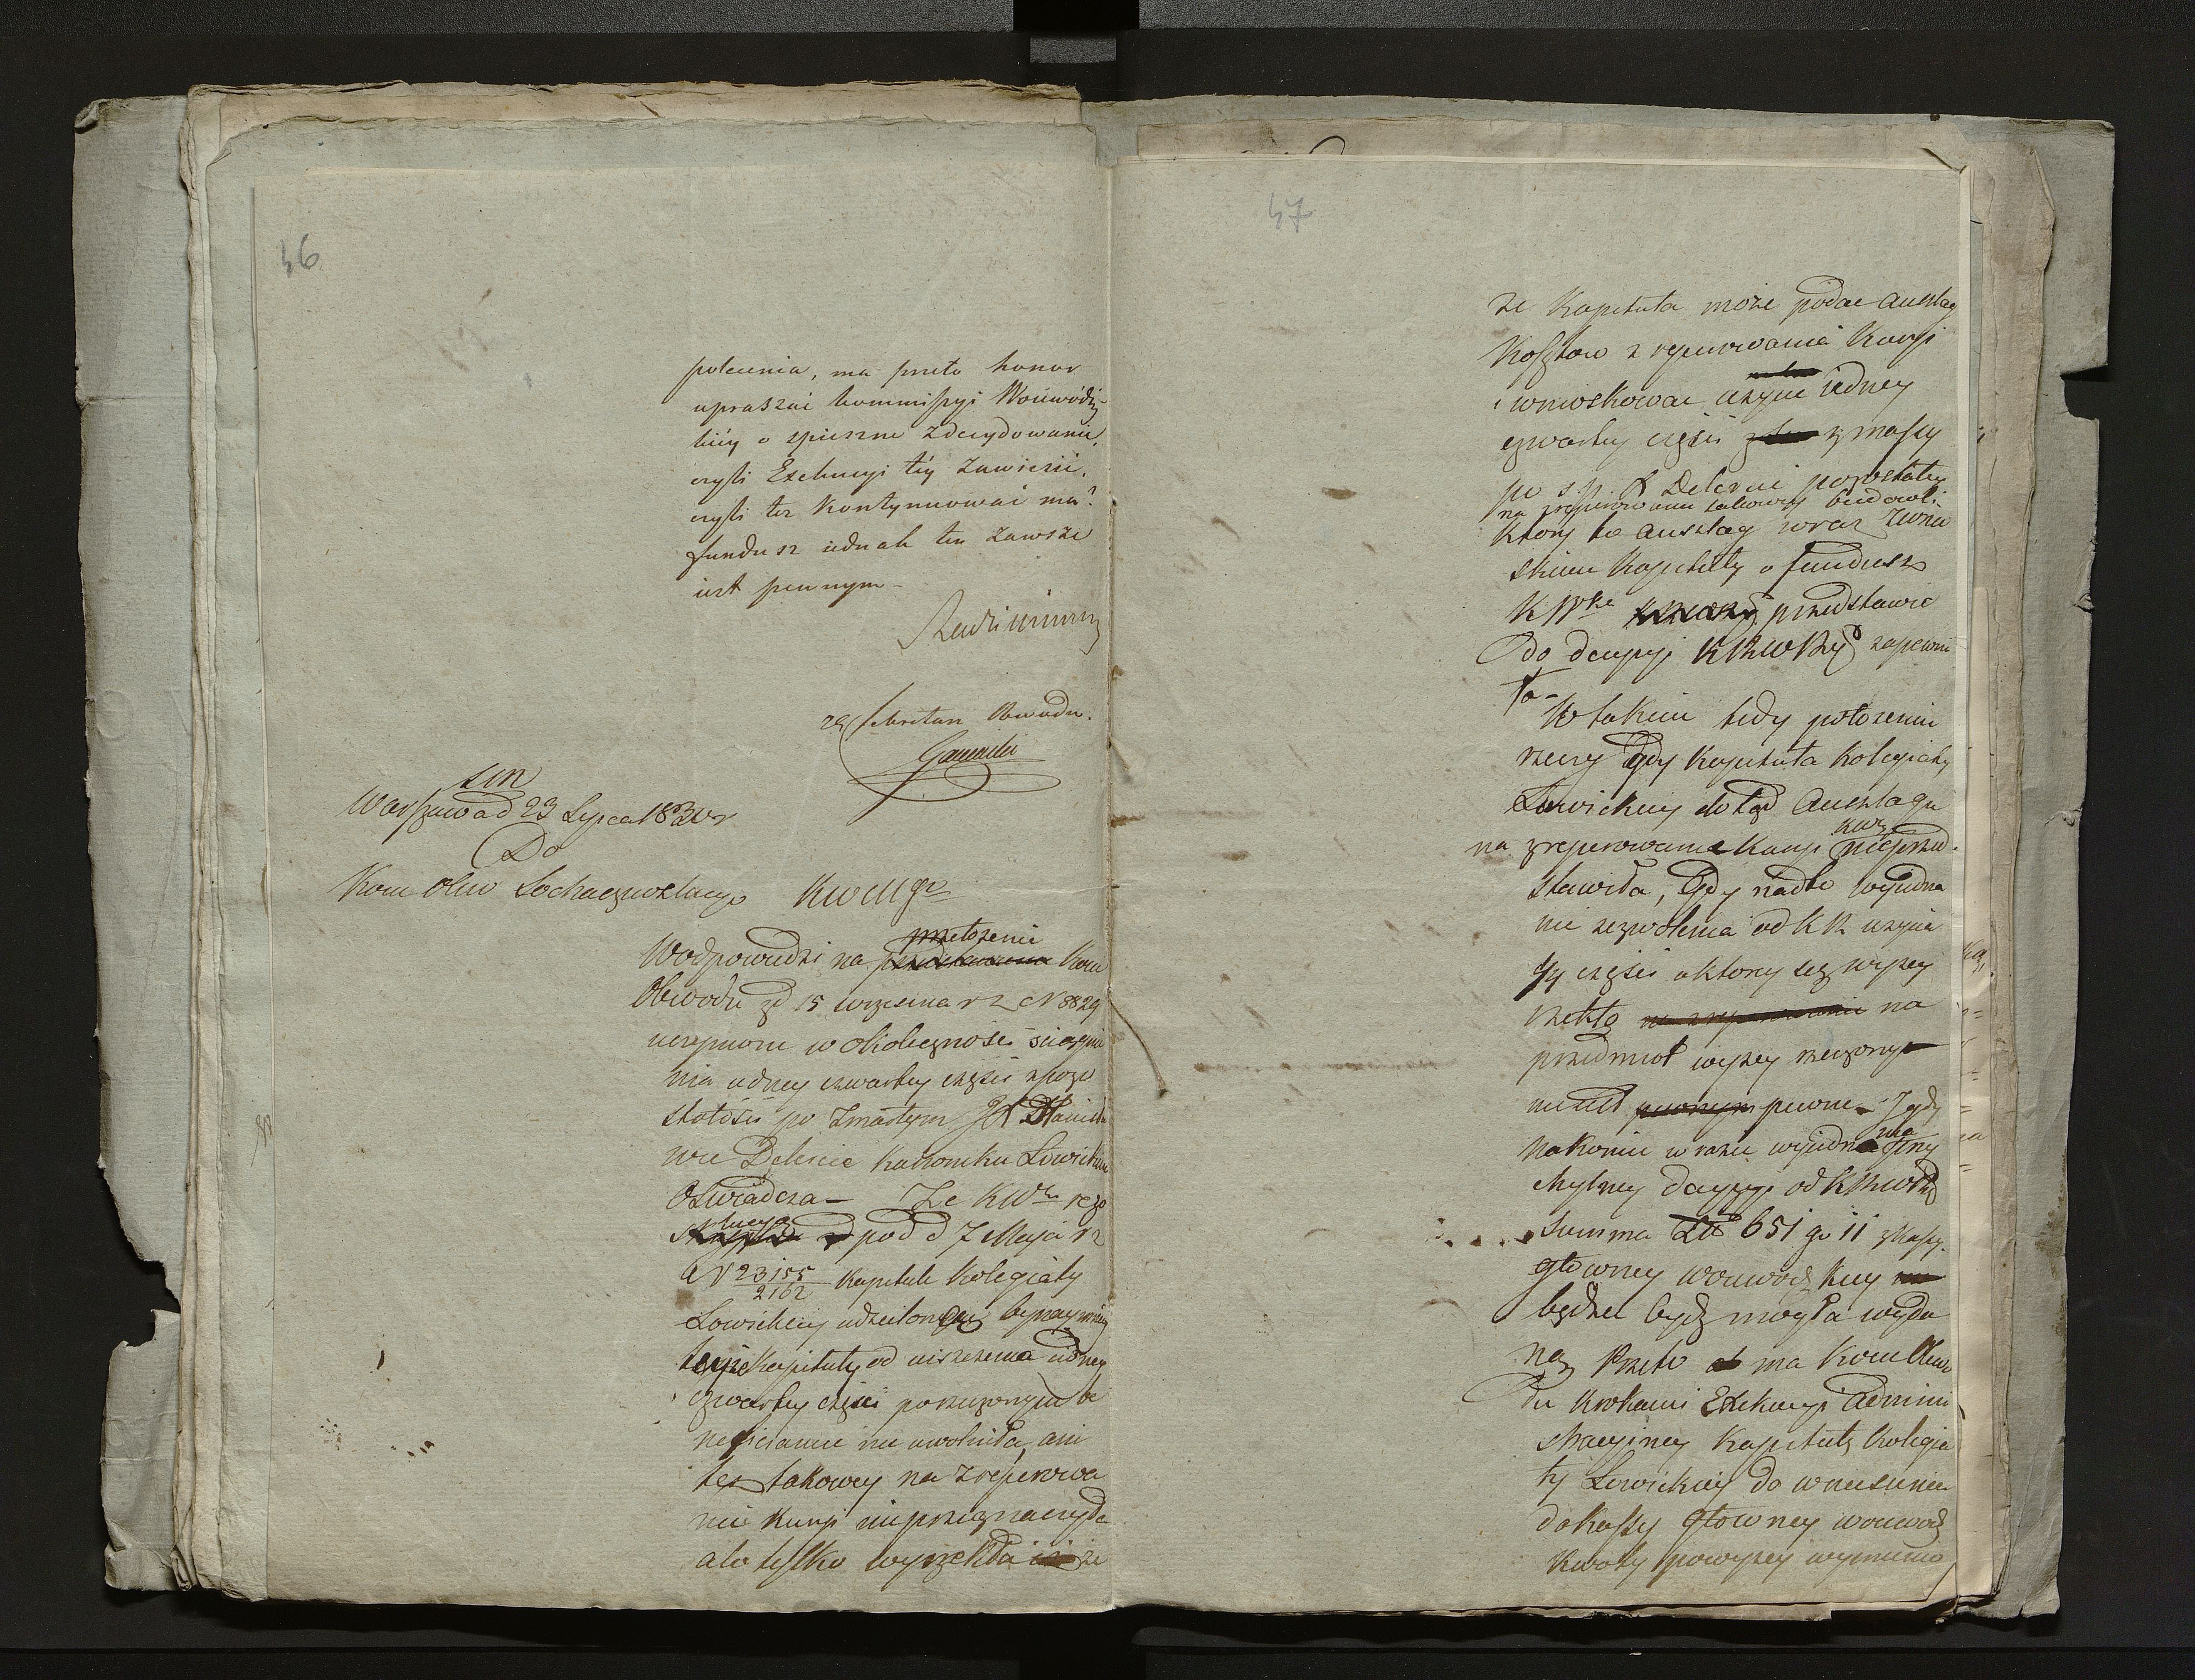 46
polecenia, ma przeto honor
upraszać kommissyi Woiewódz-
kiéy o spieszne zdecydowanie,
czyli Exekucyi téy zawiesić,
czyli tez kontynuować ma?
fundusz iednak ten zawsze
iest pewnym –
Sekretarz Obwodu.
Warszawa d 23 Lypca 183
Do
Kom Obw Sochaczewskiego KWMgo
W odpowiedzi na przełożenie Kom
Obwodu z d 15 września r z N 8829
uczynione w okoliczności sciągnie
nia iedney czwartey części z pozo
stałości po zmarłym JX Stanisła
wie Delercie kanoniku Łowickim
Oświadcza – Ze KWka rezo
lucya pod d 7 Maja r z
N 23155/2162 Kapitule Kolegiaty
Łowickiey udzieloną bynaymniey
teyże Kapituły od uiszczenia iedney
czwartey części po rzeczonym be
neficiancie nie uwolniła, ani
tez takowey na zreperowa
nie kuryi nie przeznaczyła
ale tylko wyrzekła że
47
ze Kapituła może podać anszlag
kosztow zreperowania Kuryi
i wnioskować uzycie iedney
czwartey części z massy
po s.p. X Delercie pozostałey
na zreperowanie takowey budowli
ktory to anszlag wraz z wnio
skiem Kapituły o fundusz
KWka przedstawić
do decyzyi KRW zapewni
ła –
W takim tedy położeniu
rzeczy gdy Kapituła Kolegiaty
Łowickiey dotąd anszlagu
na zreperowanie Kuryi KW nieprzed
stawiła, gdy nadto wyiedna
nie zezwolenia od KR uzycia
1/4 części o ktorey się wyzey
rzekło na
przedmiot wyzey rzeczony
nie iest pewne – I gdy
nakoniec w razie wyiednania inney
chylney decyzyi od KRW
summa Zł 651 gr 11 z kassy
głowney woiewodzkiey
będzie bydź mogła wyda
ną Przeto ma Kom Obwo
du krokami Exekucyi admini
stracyiney Kapitułę Kolegia
ty Łowickiey do wniesienia
do kassy głowney woiewodz
kwoty powyzey wymienio